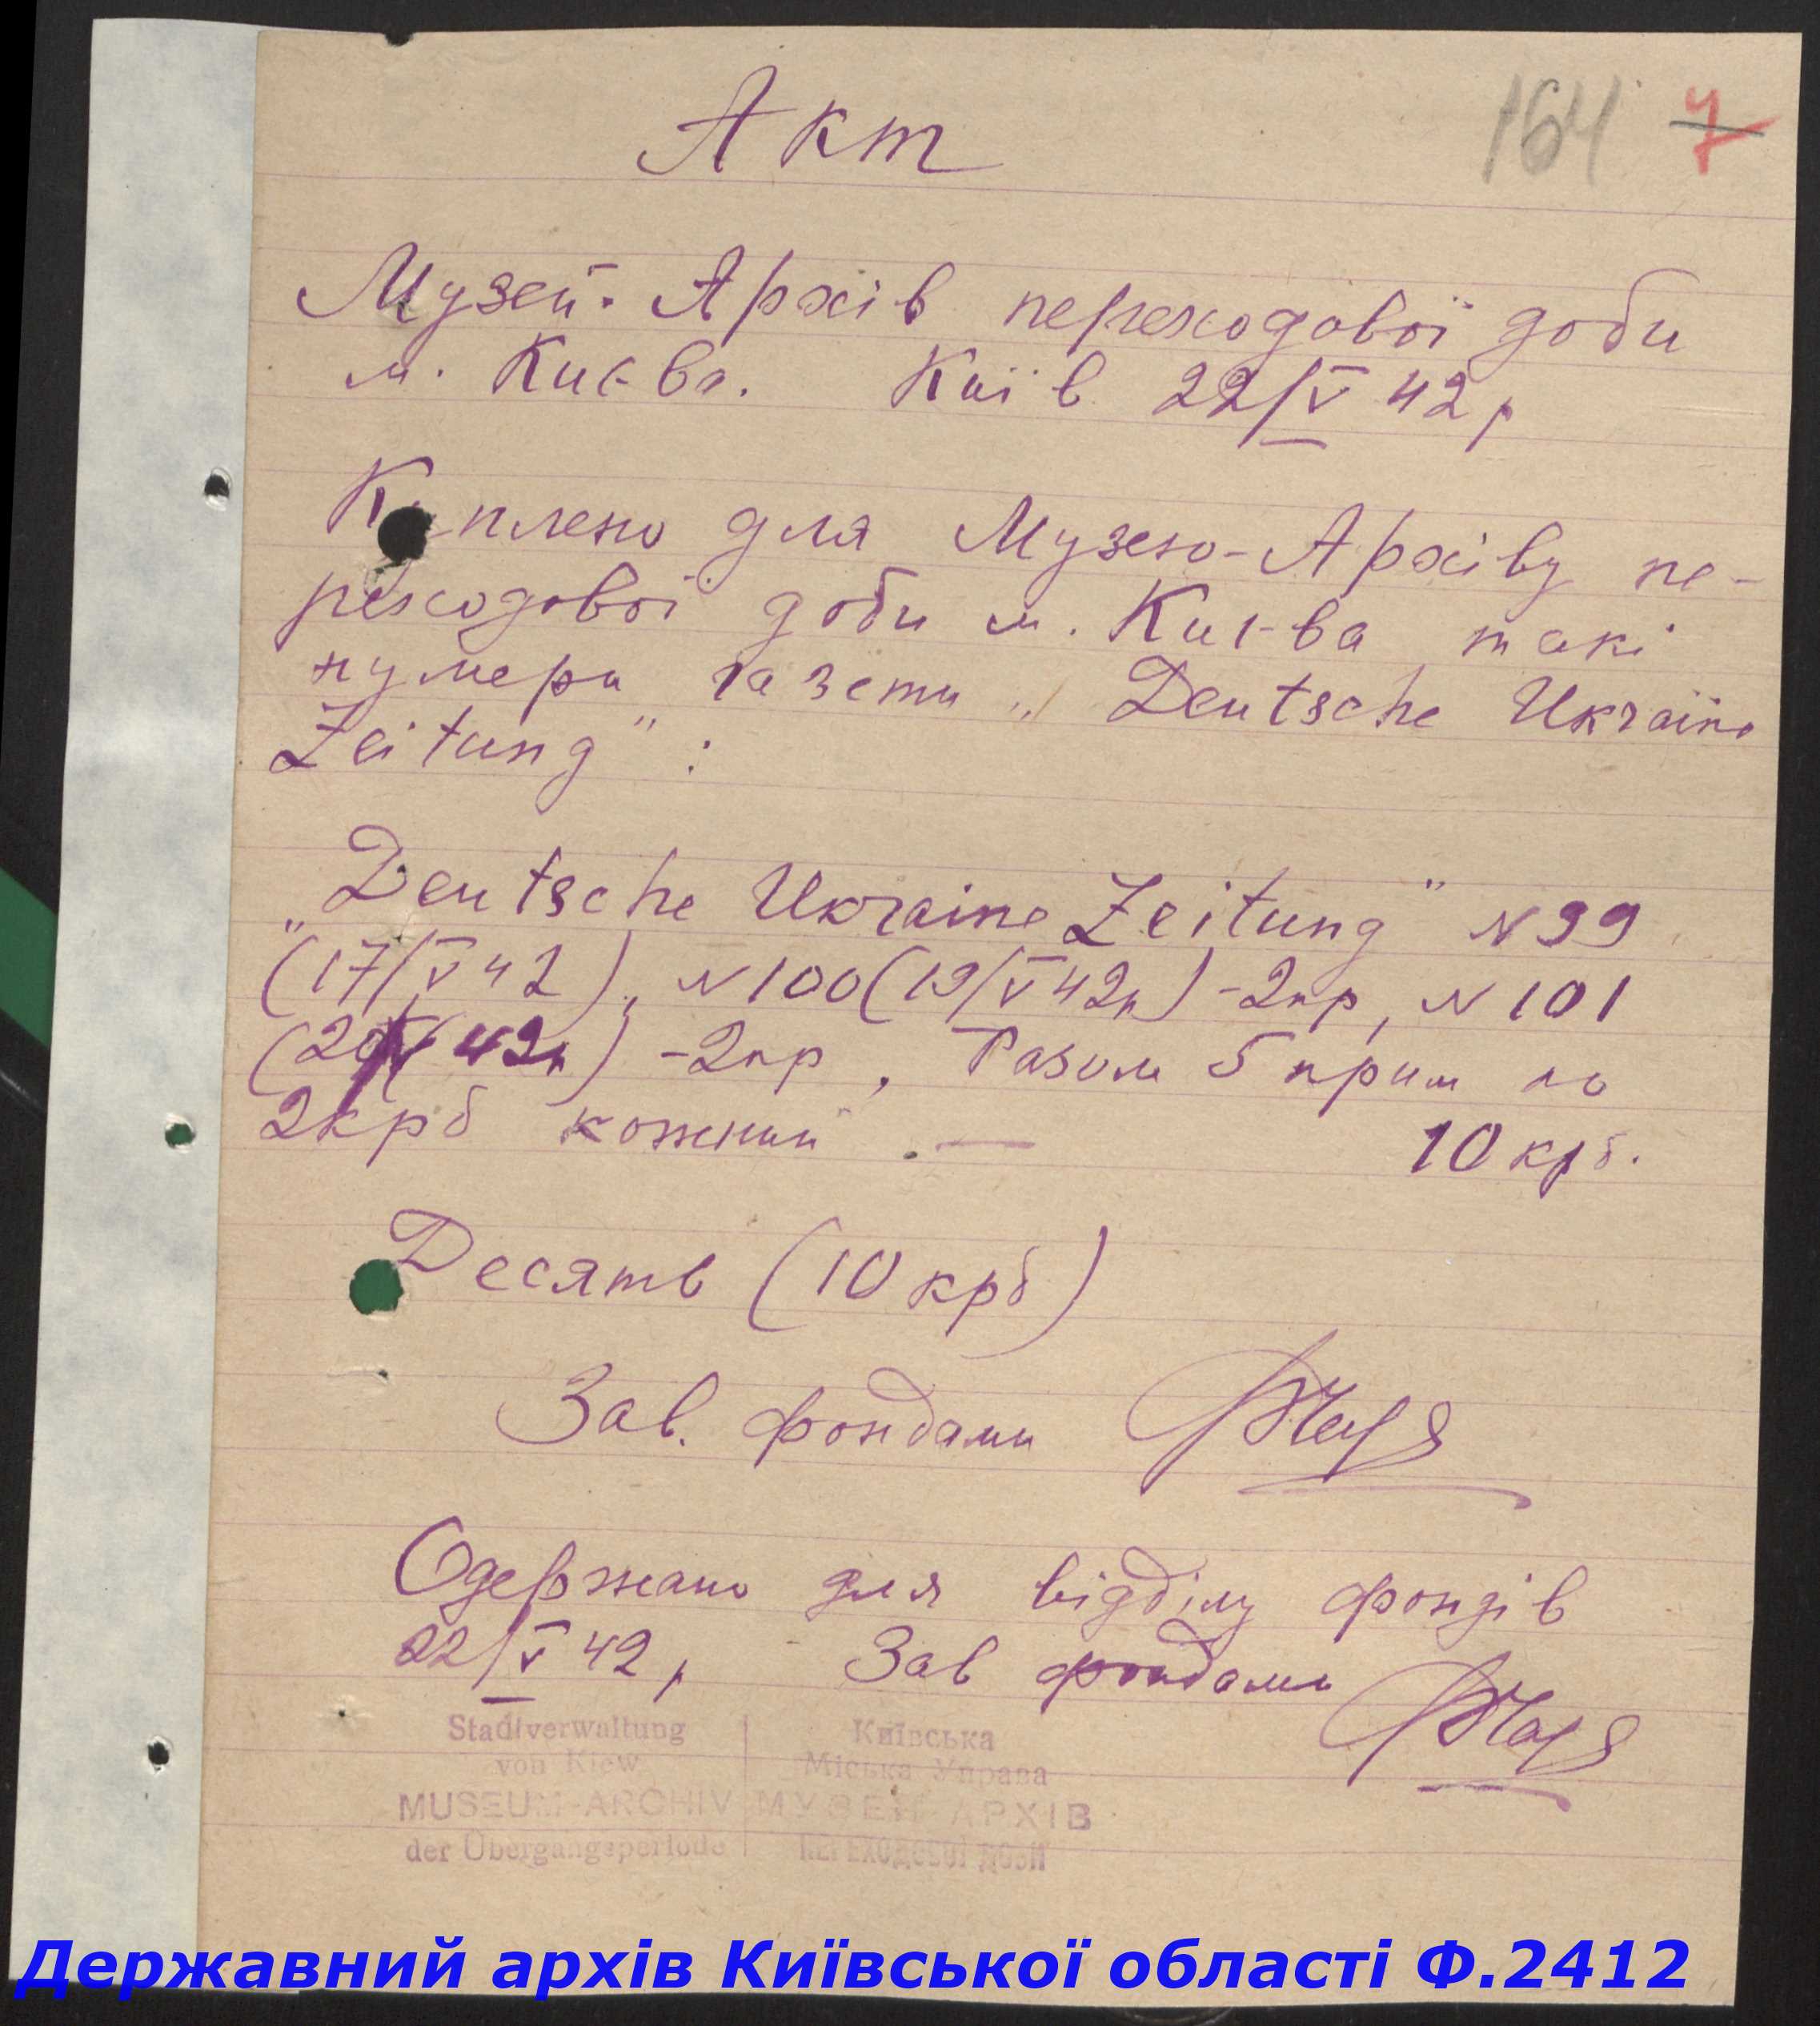 164 7
Акт
Музей-Архів переходової доби
м. Києва. Київ 22/V 42 р
Куплено для Музею-Архіву пе-
реходової доби м. Києва такі
нумери газети „Deutsche Ukraine
Zeitung":
„Deutsche Ukraine Zeitung" N 99
(17/V 42), N 100 (19/V 42р) - 2пр, N 101
(20/V 42р) - 2пр, Разом 5 прим по
2крб кожний. — 10 крб.
Десять (10 крб)
Зав. фондами
Одержано для відділу фондів
22/V 42 р Зав фондами
Stadtverwaltung Київська
von Kiew Міська Управа
MUSEUM-ARCHIV МУЗЕЙ-АРХІВ
der Übergangsperiode ПЕРЕХОДОВОЇ ДОБИ
Державний архів Київської області Ф.2412